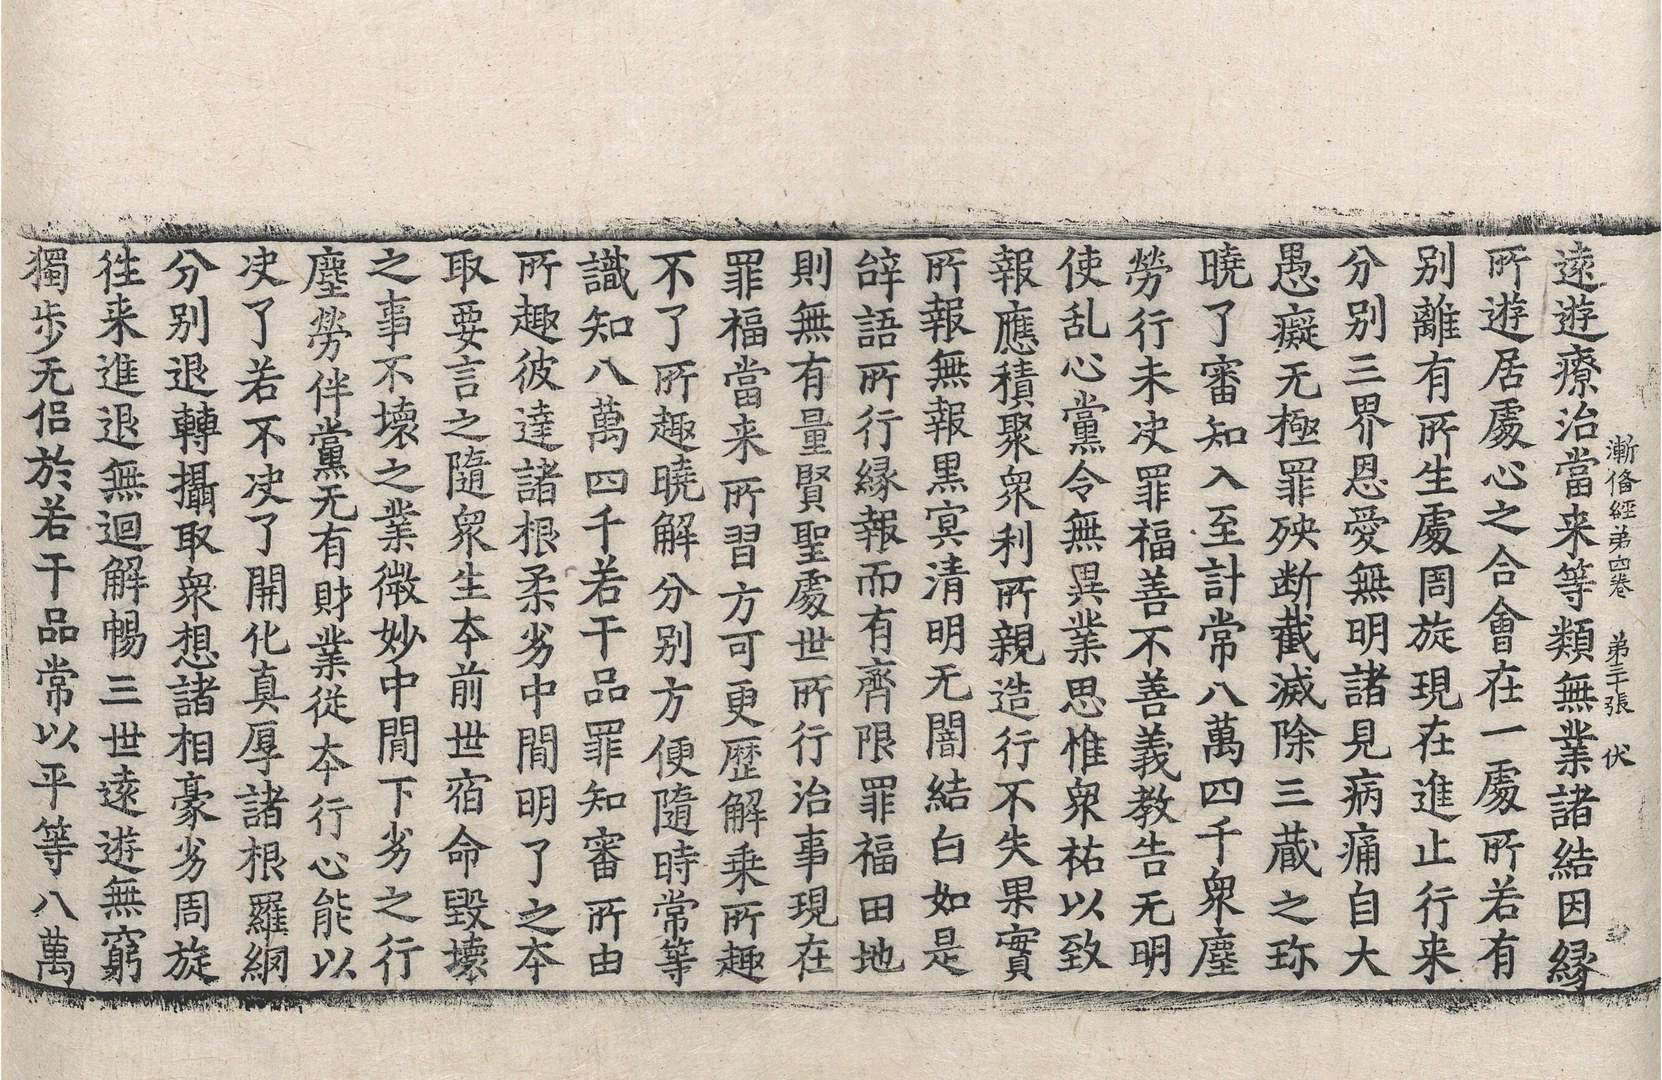 漸俻經第四卷　第三十張　伏
遠遊療治當来等類無業諸結因縁
所遊居處心之合會在一處所若有
別離有所生處周旋現在進止行来
分别三界恩愛無明諸見病痛自大
愚癡无極罪殃断截滅除三蔵之珎
曉了審知入至計常八萬四千衆塵
勞行未决罪福善不善義教告无明
使乱心黨令無異業思惟衆祐以致
報應積聚衆利所親造行不失果實
所報無報黒𡨋清明无闇結白如是
辝語所行縁報而有齊限罪福田地
則無有量賢聖處世所行治事現在
罪福當来所習方可更歷解乗所趣
不了所趣曉解分别方便隨時常等
識知八萬四千若干品罪知審所由
所趣彼達諸根柔劣中間明了之夲
取要言之隨衆生夲前世宿命毀壊
之事不壊之業微妙中間下劣之行
塵勞伴黨无有財業従夲行心能以
决了若不决了開化真厚諸根羅網
分别退轉攝取衆想諸相豪劣周旋
徃来進退無迴解暢三世遠遊無窮
獨步无侣於若干品常以平等八萬